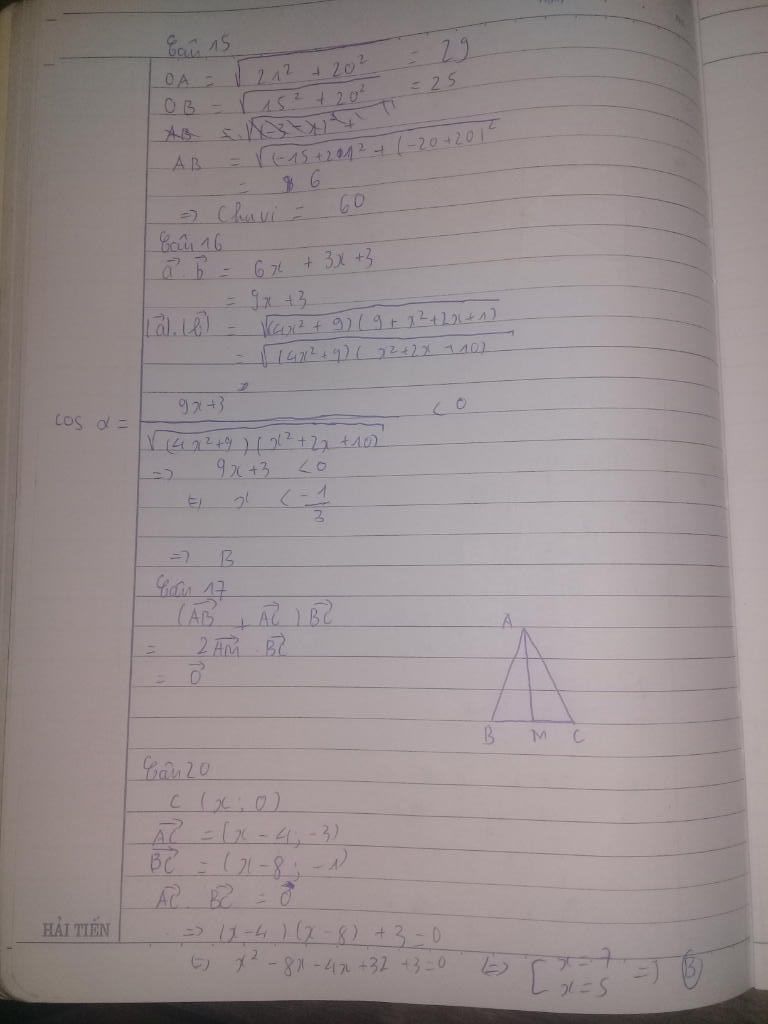 Câu 15
OA = √(21² + 20²) = 29
OB = √(15² + 20²) = 25
AB = √((-15+21)² + (-20+20)²)
= 6
=> Chu vi = 60
Câu 16
a⃗ . b⃗ = 6x + 3x + 3
= 9x + 3
|a⃗|.|b⃗| = √((4x² + 9)(9 + x² + 2x + 1))
= √((4x² + 9)(x² + 2x + 10))
cos α = (9x+3) / √((4x²+9)(x²+2x+10)) < 0
=> 9x+3 < 0
⇔ x < -1/3
=> B
Câu 17
(AB⃗ + AC⃗) BC⃗
= 2AM⃗ . BC⃗
= 0⃗
A
B M C
Câu 20
C (x; 0)
AC⃗ = (x - 4; -3)
BC⃗ = (x - 8; -1)
AC⃗ . BC⃗ = 0⃗
=> (x-4)(x-8) + 3 = 0
⇔ x² - 8x - 4x + 32 + 3 = 0 ⇔ [ x = 7 x = 5 => B
HẢI TIẾN